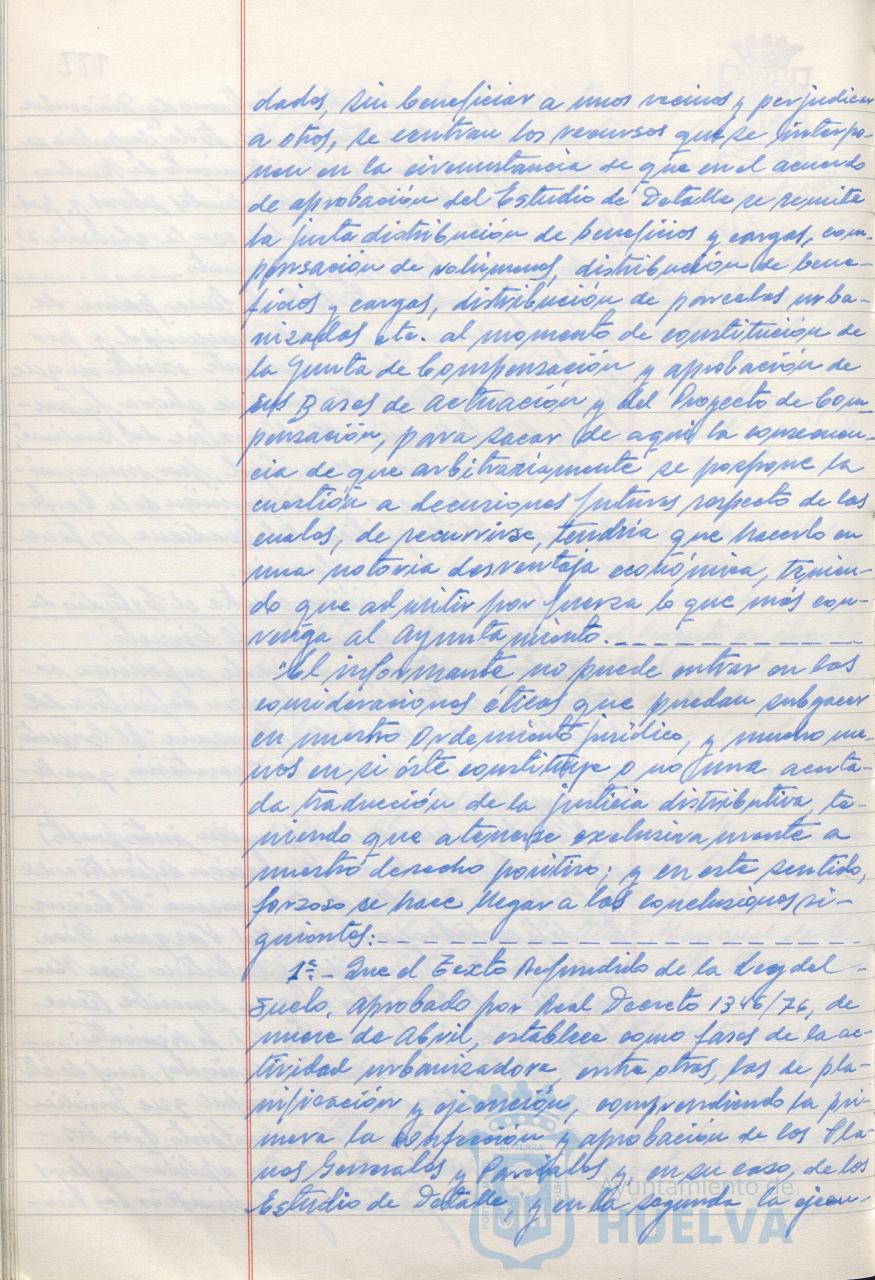 dados, sin beneficiar a unos vecinos y perjudicar
a otros, se centran los recursos que se interpo-
nen en la circunstancia de que en el acuerdo
de aprobación del Estudio de Detalle se remite
la justa distribución de beneficios y cargas, com-
pensación de volúmenes, distribución de bene-
ficios y cargas, distribución de parcelas urba-
nizadas etc. al momento de constitución de
la Junta de Compensación y aprobación de
sus Bases de Actuación y del Proyecto de Com-
pensación, para sacar de aquí la consecuen-
cia de que arbitrariamente se pospone la
cuestión a decisiones futuras respecto de las
cuales, de recurrirse, tendría que hacerlo en
una notoria desventaja económica, tenien-
do que admitir por fuerza lo que más con-
venga al Ayuntamiento.
"El informante no puede entrar en las
consideraciones éticas que puedan subyacer
en nuestro Ordenamiento jurídico, y mucho me-
nos en si éste constituye o no una acerta-
da traducción de la justicia distributiva, te-
niendo que atenerse exclusivamente a
nuestro derecho positivo; y en este sentido,
forzoso se hace llegar a las conclusiones si-
guientes:
1ª.- Que el Texto Refundido de la Ley del
Suelo, aprobado por Real Decreto 1346/76, de
nueve de Abril, establece como fases de la ac-
tividad urbanizadora, entre otras, las de pla-
nificación y ejecución, comprendiendo la pri-
mera la confección y aprobación de los Pla-
nes Generales y Parciales y, en su caso, de los
Estudio de Detalle, y en la segunda la ejecu-
Ayuntamiento de
HUELVA